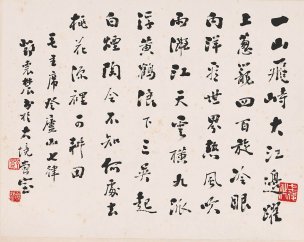 一山飛峙大江邊躍
上蔥蘢四百旋冷眼
向洋看世界熱風吹
雨灑江天雲橫九派
浮黃鶴浪下三吳起
白煙陶令不知何處去
桃花源裡可耕田
毛主席登廬山七律